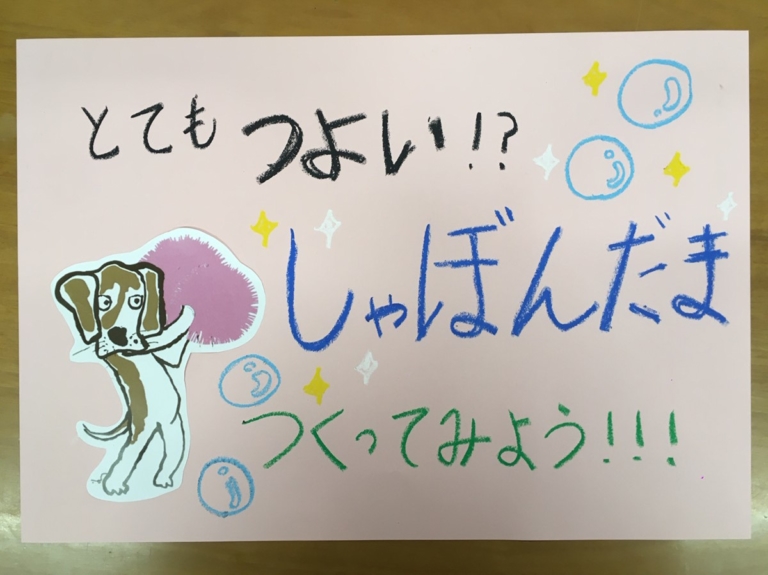 とても つよい!?
しゃぼんだま
つくってみよう!!!